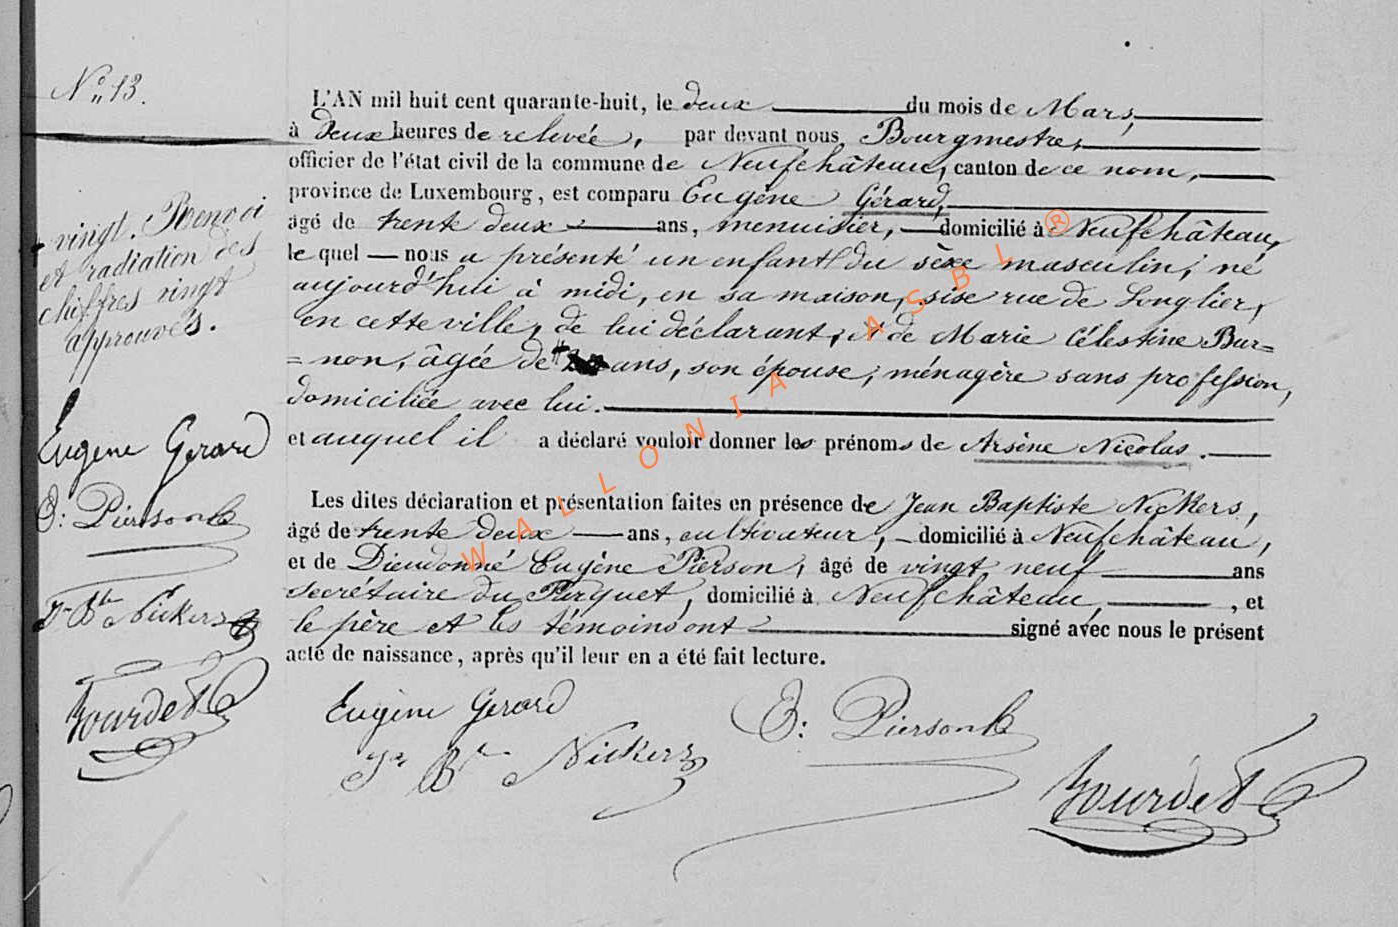 N° 13.
+ vingt. Renvoi
et radiation des
chiffres vingt
approuvés.
Eugène Gerard
D: Pierson
Jn Bte Nickers
Bourdet
L'AN mil huit cent quarante-huit, le deux du mois de Mars,
à deux heures de relevée, par devant nous Bourgmestre,
officier de l'état civil de la commune de Neufchâteau, canton de ce nom,
province de Luxembourg, est comparu Eugène Gérard,
âgé de trente deux ans, menuisier, domicilié à Neufchâteau,
le quel nous a présenté un enfant du sèxe masculin, né
aujourd'hui à midi, en sa maison, sise rue de Longlier,
en cette ville, de lui déclarant, et de Marie Célestine Bur=
=non, âgée de + ans, son épouse, ménagère sans profession,
domiciliée avec lui.
et auquel il a déclaré vouloir donner les prénoms de Arsène Nicolas.
Les dites déclaration et présentation faites en présence de Jean Baptiste Nickers,
âgé de trente deux ans, cultivateur, domicilié à Neufchâteau,
et de Dieudonné Eugène Pierson, âgé de vingt neuf ans
secrétaire du Parquet, domicilié à Neufchâteau, , et
le père et les témoins ont signé avec nous le présent
acte de naissance, après qu'il leur en a été fait lecture.
Eugène Gerard
D: Pierson
Jn Bte Nickers
Bourdet
WALLONIA ASBL ®